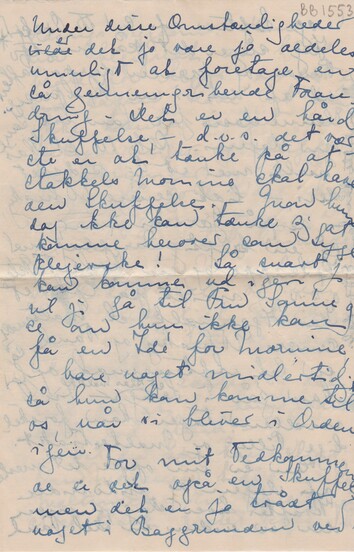 BB1553
Under disse Omstændigheder
vilde det jo være jo aldeles
umuligt at foretage en
så gennemgribende Foran
dring - Det er en hård
Skuffelse - d.v.s. det vær
ste er at tænke på at
stakkels Mornine skal have
den Skuffelse. - Mon hun
dog ikke kan tænke sig at
komme herover som Syge
plejerske! Så snart j
kan komme ud igen
vil ji gå til Frn
se om hun ikke kan
få en Idé for Mornine
bare noget midlertid.
så hun kan komme til
os, når vi bliver i Orden
igen. For mit Vedkommen
de er det også en Skuffel
men det er jo trådt
noget i Baggrunden ved